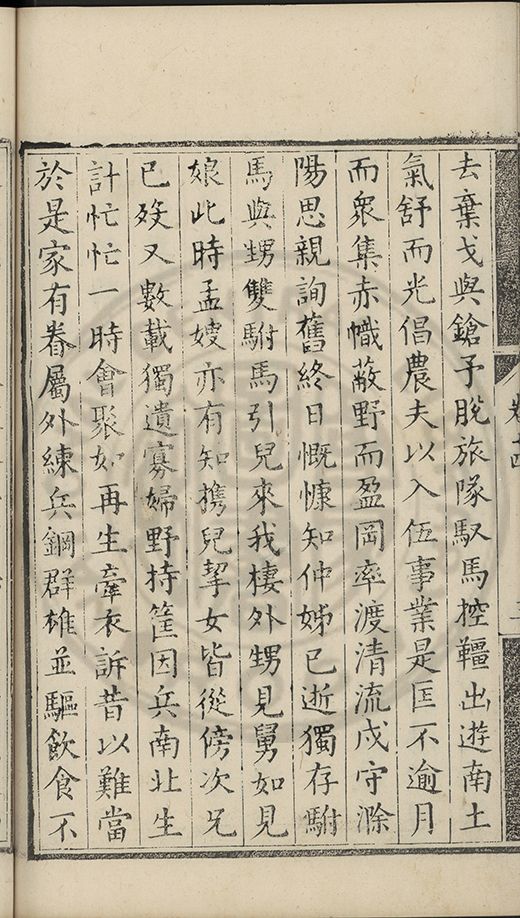 去棄戈與鎗予脫旅隊馭馬控韁出遊南土
氣舒而光倡農夫以入伍事業是匡不逾月
而眾集赤幟蔽野而盈岡率渡清流戍守滁
陽思親詢舊終日慨慷知仲姊已逝獨存駙
馬與甥雙駙馬引兒來我棲外甥見舅如見
娘此時孟嫂亦有知携兒挈女皆從傍次兄
已歿又數載獨遺寡婦野持筐因兵南北生
計忙忙一時會聚如再生牽衣訴昔以難當
於是家有眷屬外練兵鋼群雄並驅飲食不